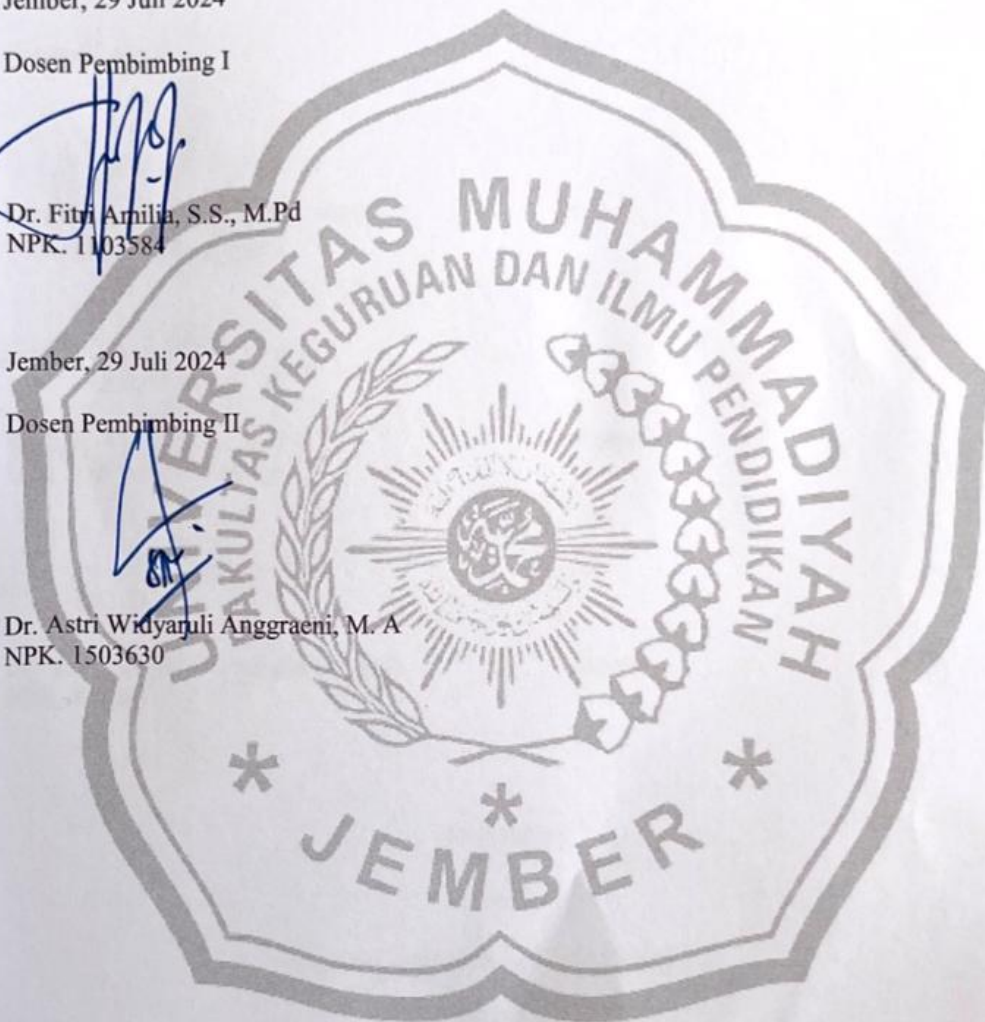 Jember, 29 Juli 2024
Dosen Pembimbing I
Dr. Fitri Amilia, S.S., M.Pd
NPK. 1103584
Jember, 29 Juli 2024
Dosen Pembimbing II
Dr. Astri Widyaruli Anggraeni, M. A
NPK. 1503630
UNIVERSITAS MUHAMMADIYAH
FAKULTAS KEGURUAN DAN ILMU PENDIDIKAN
* JEMBER *
*